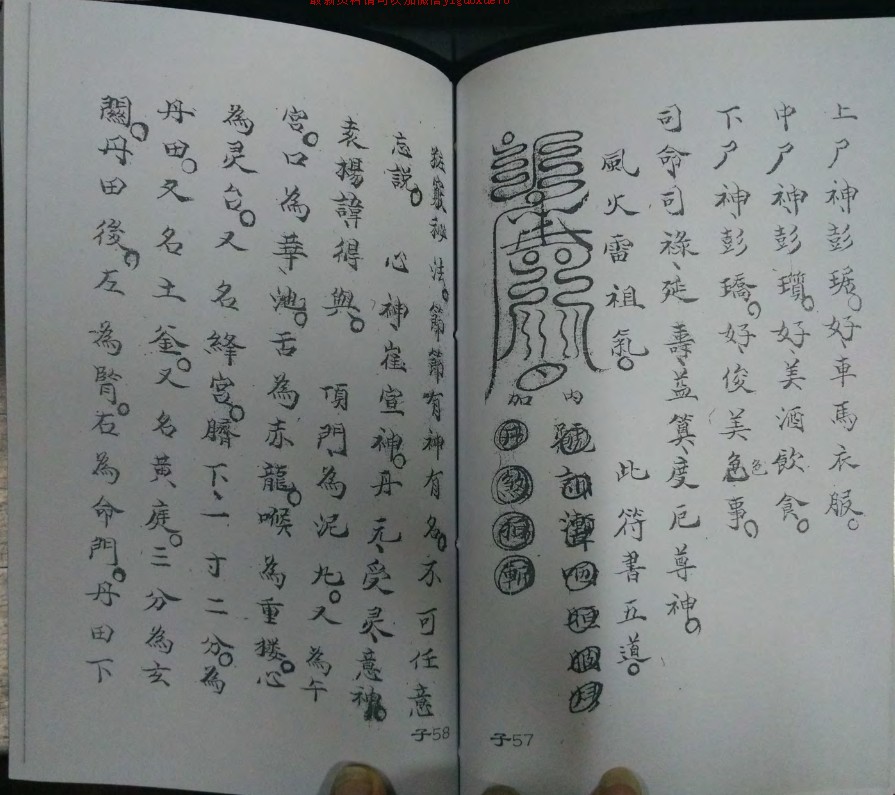 上尸神彭琚。好、車馬衣服。
中尸神彭瓚。好、美酒飲食。
下尸神彭琦。好、俊美色事。
司命司祿、延壽、益算、度厄尊神。
風火雷祖氣。 此符書五道。
內
加
子57
秘法。節節有神有名。不可任意
忘說。 心神崔宣神。丹元、受灵、意神。
袁楊諱得與。 頂門為泥丸。又為午
宮。口為華池。舌為赤龍。喉為重楼。心
為灵台。又名絳宮。臍下、一寸二分。為
丹田。又名土釜。又名黃庭。三分為玄
關。丹田後。左為腎。右為命門。丹田下
子58